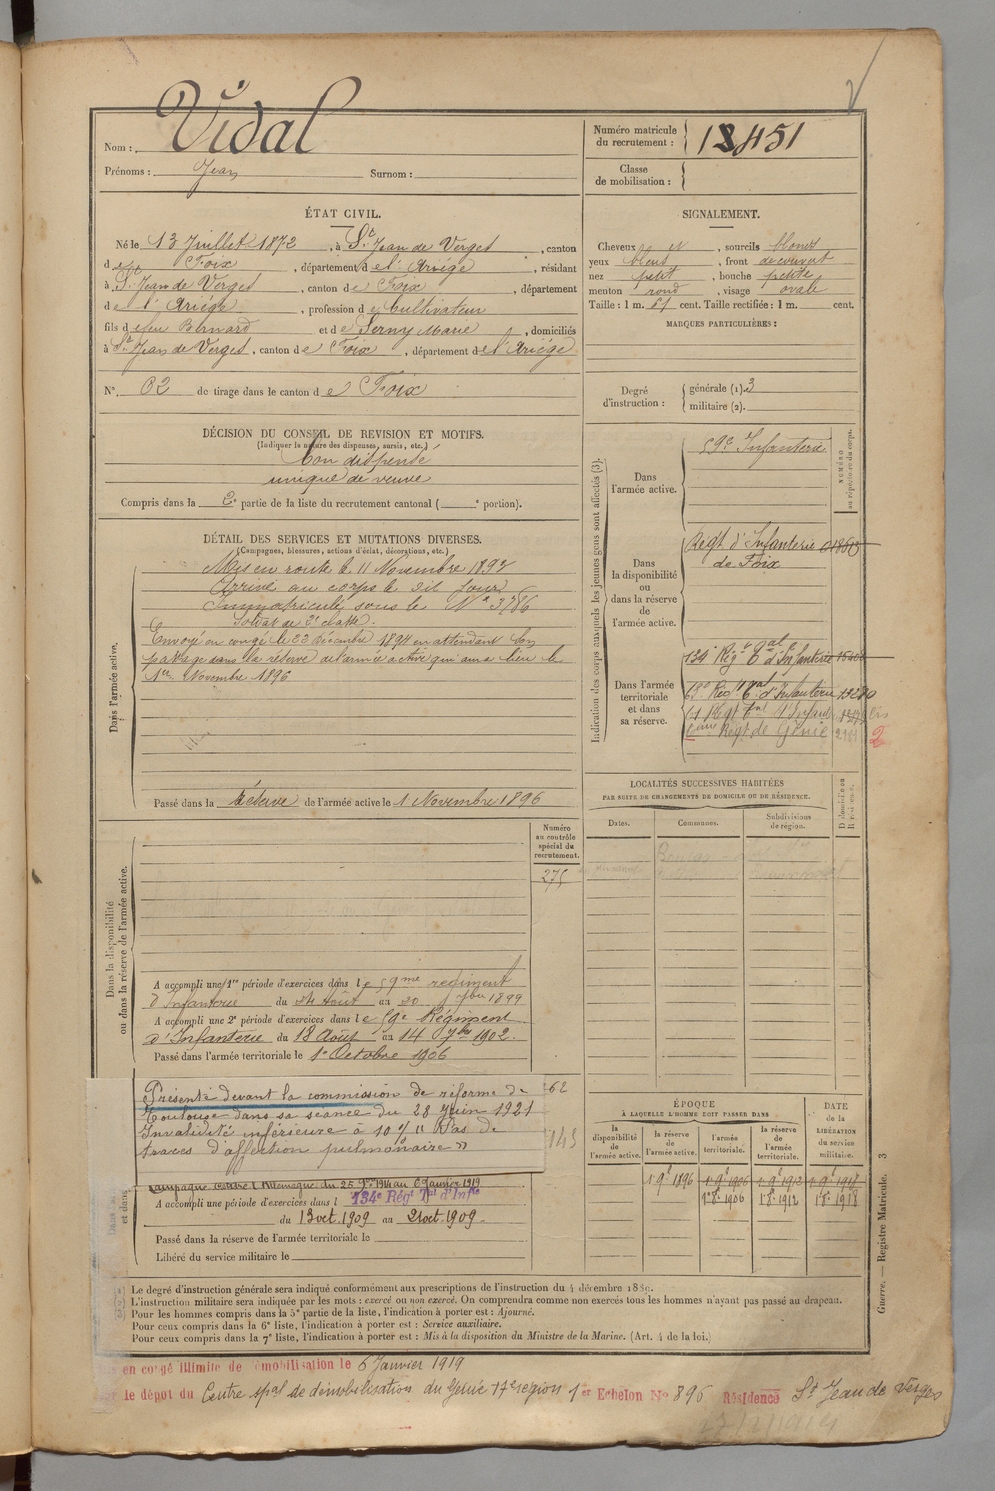 Nom : Vidal
Prénoms : Jean Surnom :
Numéro matricule du recrutement : 451
Classe de mobilisation :
ÉTAT CIVIL.
Né le 13 Juillet 1872, à St Jean de Verges, canton
de Foix, département de l'Ariège, résidant
à St Jean de Verges, canton de Foix, département
de l'Ariège, profession de Cultivateur
fils de feu Bernard et de Serny Marie, domiciliés
à St Jean de Verges, canton de Foix, département de l'Ariège
N° 62 de tirage dans le canton de Foix
SIGNALEMENT.
Cheveux et, sourcils blonds
yeux bleus, front découvert
nez petit, bouche petite
menton rond, visage ovale
Taille : 1 m. cent. Taille rectifiée : 1 m. cent.
MARQUES PARTICULIÈRES :
Degré d'instruction : générale (1). 3
militaire (2).
DÉCISION DU CONSEIL DE REVISION ET MOTIFS.
(Indiquer la nature des dispenses, sursis, etc.)
bon dispensé
unique de veuve
Compris dans la 2e partie de la liste du recrutement cantonal ( e portion).
DÉTAIL DES SERVICES ET MUTATIONS DIVERSES.
(Campagnes, blessures, actions d'éclat, décorations, etc.)
Dans l'armée active.
Mis en route le 11 Novembre 1893
Arrivé au corps le dit Jour
Immatriculé sous le N° 3786
Soldat de 2e classe.
Envoyé en congé le 23 décembre 1894 en attendant son
passage dans la réserve de l'armée active qui aura lieu le
1er Novembre 1896
Passé dans la réserve de l'armée active le 1 Novembre 1896
Indication des corps auxquels les jeunes gens sont affectés (3).
NUMÉRO au répertoire du corps.
Dans l'armée active.
59e Infanterie
Dans la disponibilité ou dans la réserve de l'armée active.
Regt d'Infanterie
de Foix
Dans l'armée territoriale et dans sa réserve.
134 Régt Tal d'Infanterie
Regt Tal d'Infanterie
Regt de Génie
2
LOCALITÉS SUCCESSIVES HABITÉES
PAR SUITE DE CHANGEMENTS DE DOMICILE OU DE RÉSIDENCE.
Dates.
Communes.
Subdivisions de région.
D domicile ou R résidence.
Numéro au contrôle spécial du recrutement.
275
Dans la disponibilité ou dans la réserve de l'armée active.
A accompli une 1re période d'exercices dans le 59me régiment
d'Infanterie du 24 Août au 20 7bre 1899
A accompli une 2e période d'exercices dans le 59e Régiment
d'Infanterie du 18 Août au 14 7bre 1902.
Passé dans l'armée territoriale le 1e Octobre 1906
Présenté devant la commission de réforme de
Toulouse dans sa séance du 28 Juin 1921
Invalidité inférieure à 10 % "Pas de
traces d'affection pulmonaire"
62
145
Campagne contre l'Allemagne du 25 9bre 1914 au 6 Janvier 1919
A accompli une période d'exercices dans l 134e Régt Tal d'Infie
du 13 oct. 1909 au 21 oct. 1909
Passé dans la réserve de l'armée territoriale le
Libéré du service militaire le
ÉPOQUE
À LAQUELLE L'HOMME DOIT PASSER DANS
la disponibilité de l'armée active.
la réserve de l'armée active.
l'armée territoriale.
la réserve de l'armée territoriale.
DATE de la LIBÉRATION du service militaire.
1 9e 1896 1 9e 1906 1 9e 1912 1 9e 1918
1 8e 1906 1 8e 1912 1 8e 1918
Guerre. — Registre Matricule. 3
Le degré d'instruction générale sera indiqué conformément aux prescriptions de l'instruction du 4 décembre 1889.
L'instruction militaire sera indiquée par les mots : exercé ou non exercé. On comprendra comme non exercés tous les hommes n'ayant pas passé au drapeau.
Pour les hommes compris dans la 5e partie de la liste, l'indication à porter est : Ajourné.
Pour ceux compris dans la 6e liste, l'indication à porter est : Service auxiliaire.
Pour ceux compris dans la 7e liste, l'indication à porter est : Mis à la disposition du Ministre de la Marine. (Art. 4 de la loi.)
en congé illimité de démobilisation le 6 Janvier 1919
le dépôt du Centre spal de démobilisation du Génie 17e région 1er Echelon N° 896 Résidence St Jean de Verges